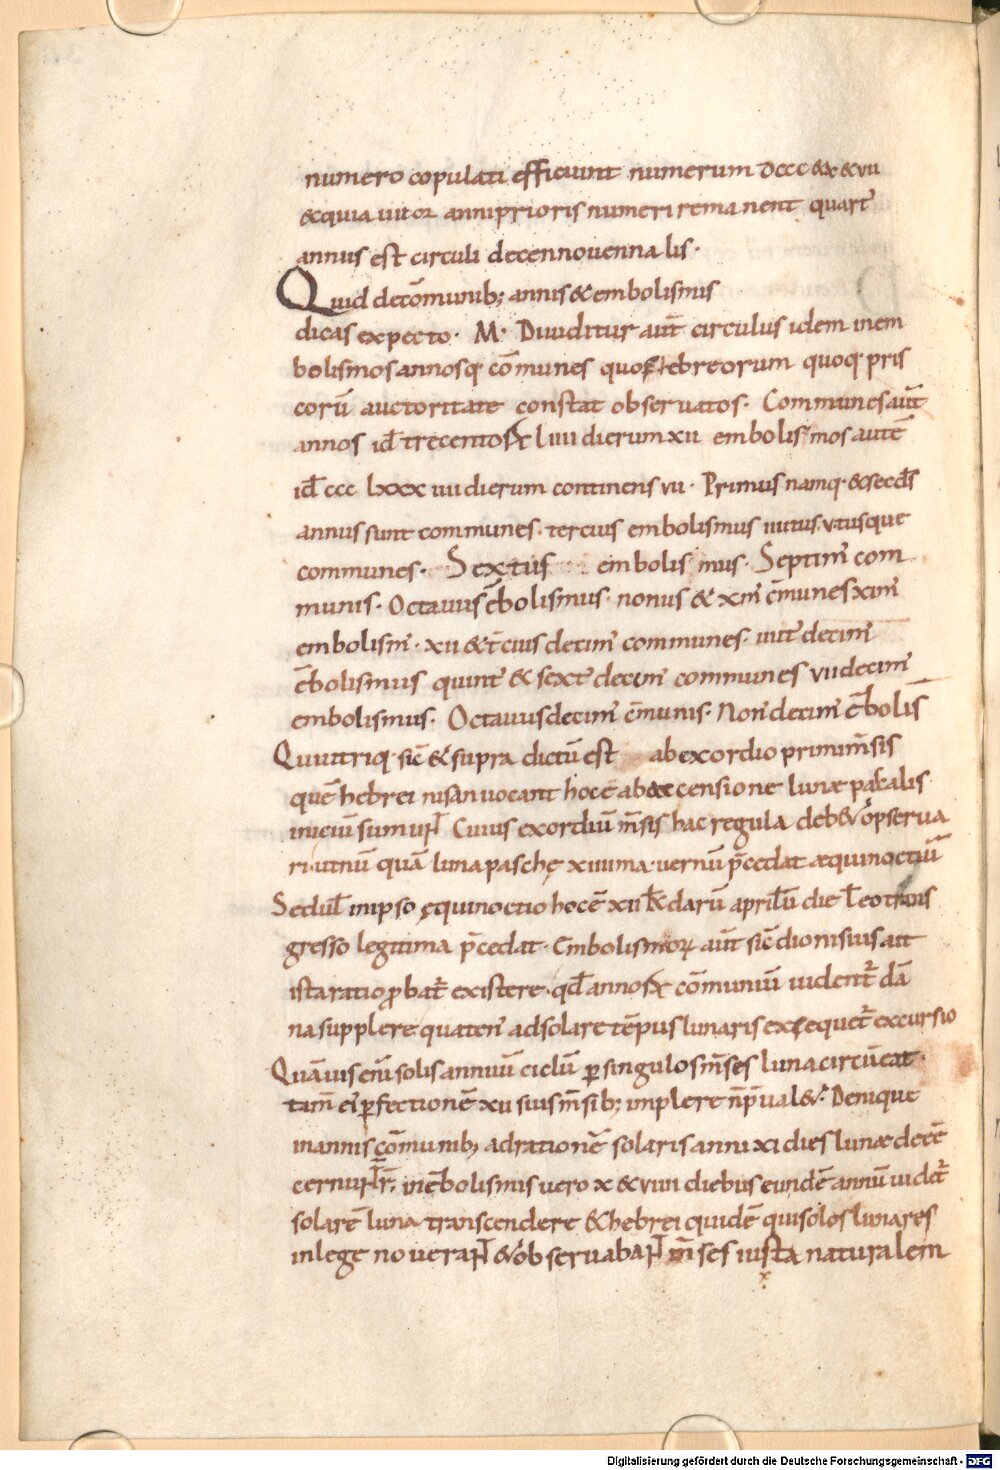 numero copulati efficiunt numerum dccc &x &vii
&quia uitor anni prioris numeri remanent quart᷎
annus est circuli decennouennalis·
Quid decōmunib; annis & embolismis
dicas expecto· M· Diuiditur aut̄ circulus idem inem
bolismos annosq· cōmunes quos hebreorum quoq· pris
corū auctoritate constat obseruatos· Communes aut̄
annos id̄ trecentos & liiii dierum xii embolismos autē
id̄ ccc lxxx iiii dierum continens vii· Primus namq· & secds
annus sunt communes· tercius embolismus iiiitus vtusque
communes· Sextus embolismus· Septim᷎ com
munis· Octauus ēbolismus· nonus & xm᷎ c̄munes xim᷎
embolism᷎· xii & t̄cius decim᷎ communes· iiiit᷎ decim᷎
ēbolismus quint᷎ & sext᷎ decim᷎ communes vii decim᷎
embolismus· Octauus decim᷎ c̄munis· Non᷎ decim᷎ ēbolis̄
Quiutriq· sic̄ & supra dictū est ab exordio primi m̄sis
quē hebrei nisan uocant hoc ē ab accensione lunæ pascalis
iniciū sumunt̄ Cuius exordiū m̄sis hac regula deb& obserua
ri utnū quā luna paschę xiiiima uernū p̄cedat æquinoctiū
Sedul᷎ inipso ęquinoctio hoc ē xii kl darū apriliū die l̄eo trans
gresso legitima p̄cedat· Embolismorꝝ aut̄ sic̄ dionisius ait
ista ratio ꝓbat᷎ existere· qd̄ annos & cōmuniū uident᷎ dā
na supplere quaten᷎ adsolare tēpus lunaris exsequet᷎ excursio
Quāuis enī solis annuū ciclū ꝑ singulos m̄ses luna circūeat·
tam̄ ei ꝑfectionē xii suis m̄sib; implere n̄ p̄ual&· Denique
inannis cōmunib; adrationē solaris anni xi dies lunæ deeē
cernunt̄r· inēbolismis uero x &viiii diebus eundē annū uidet᷎
solarē luna transcendere & hebrei quidē qui solos lunares
inlege nouerant̄ & obseruabant̄ m̄ses iusta naturalem
Digitalisierung gefördert durch die Deutsche Forschungsgemeinschaft - DFG